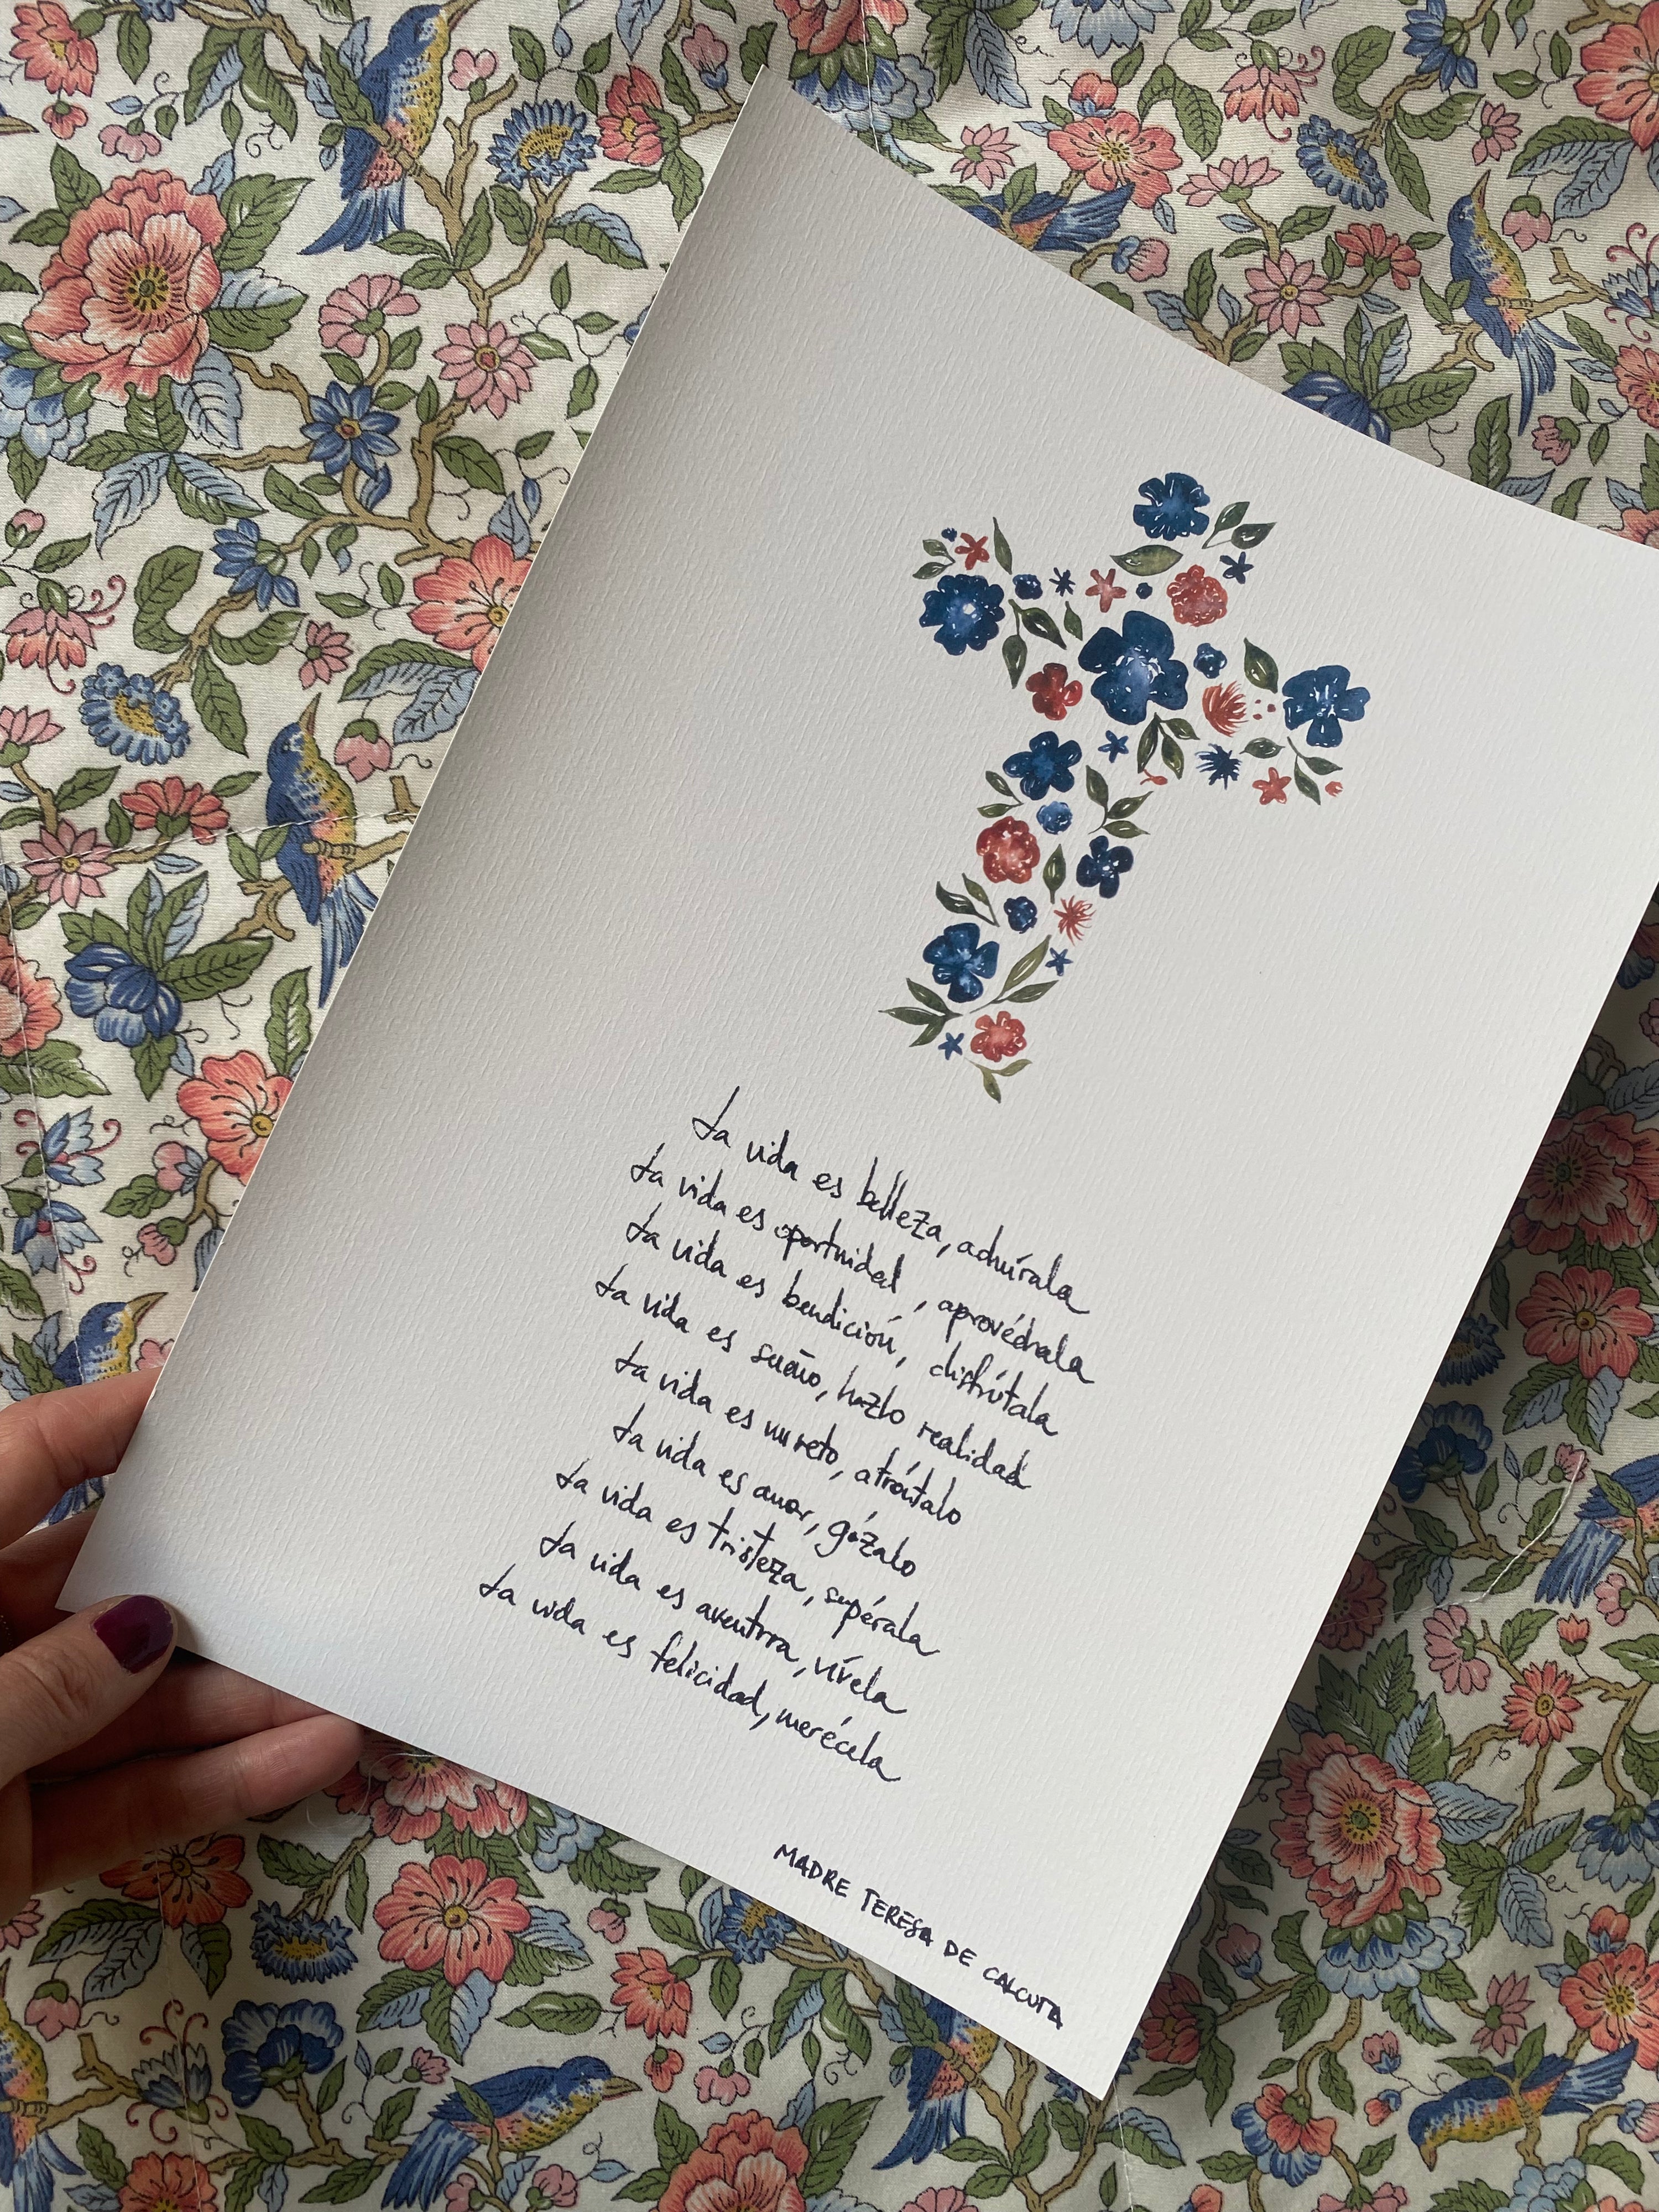 La vida es belleza, admírala
La vida es oportunidad, aprovéchala
La vida es bendición, disfrútala
La vida es sueño, hazlo realidad
La vida es un reto, afróntalo
La vida es amor, gózalo
La vida es tristeza, supérala
La vida es aventura, vívela
La vida es felicidad, merécela
MADRE TERESA DE CALCUTA